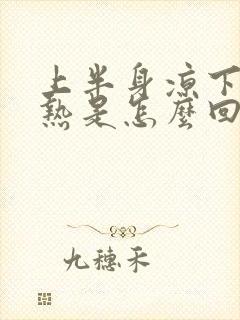 上半身凉下
热是怎麼回
九穗禾